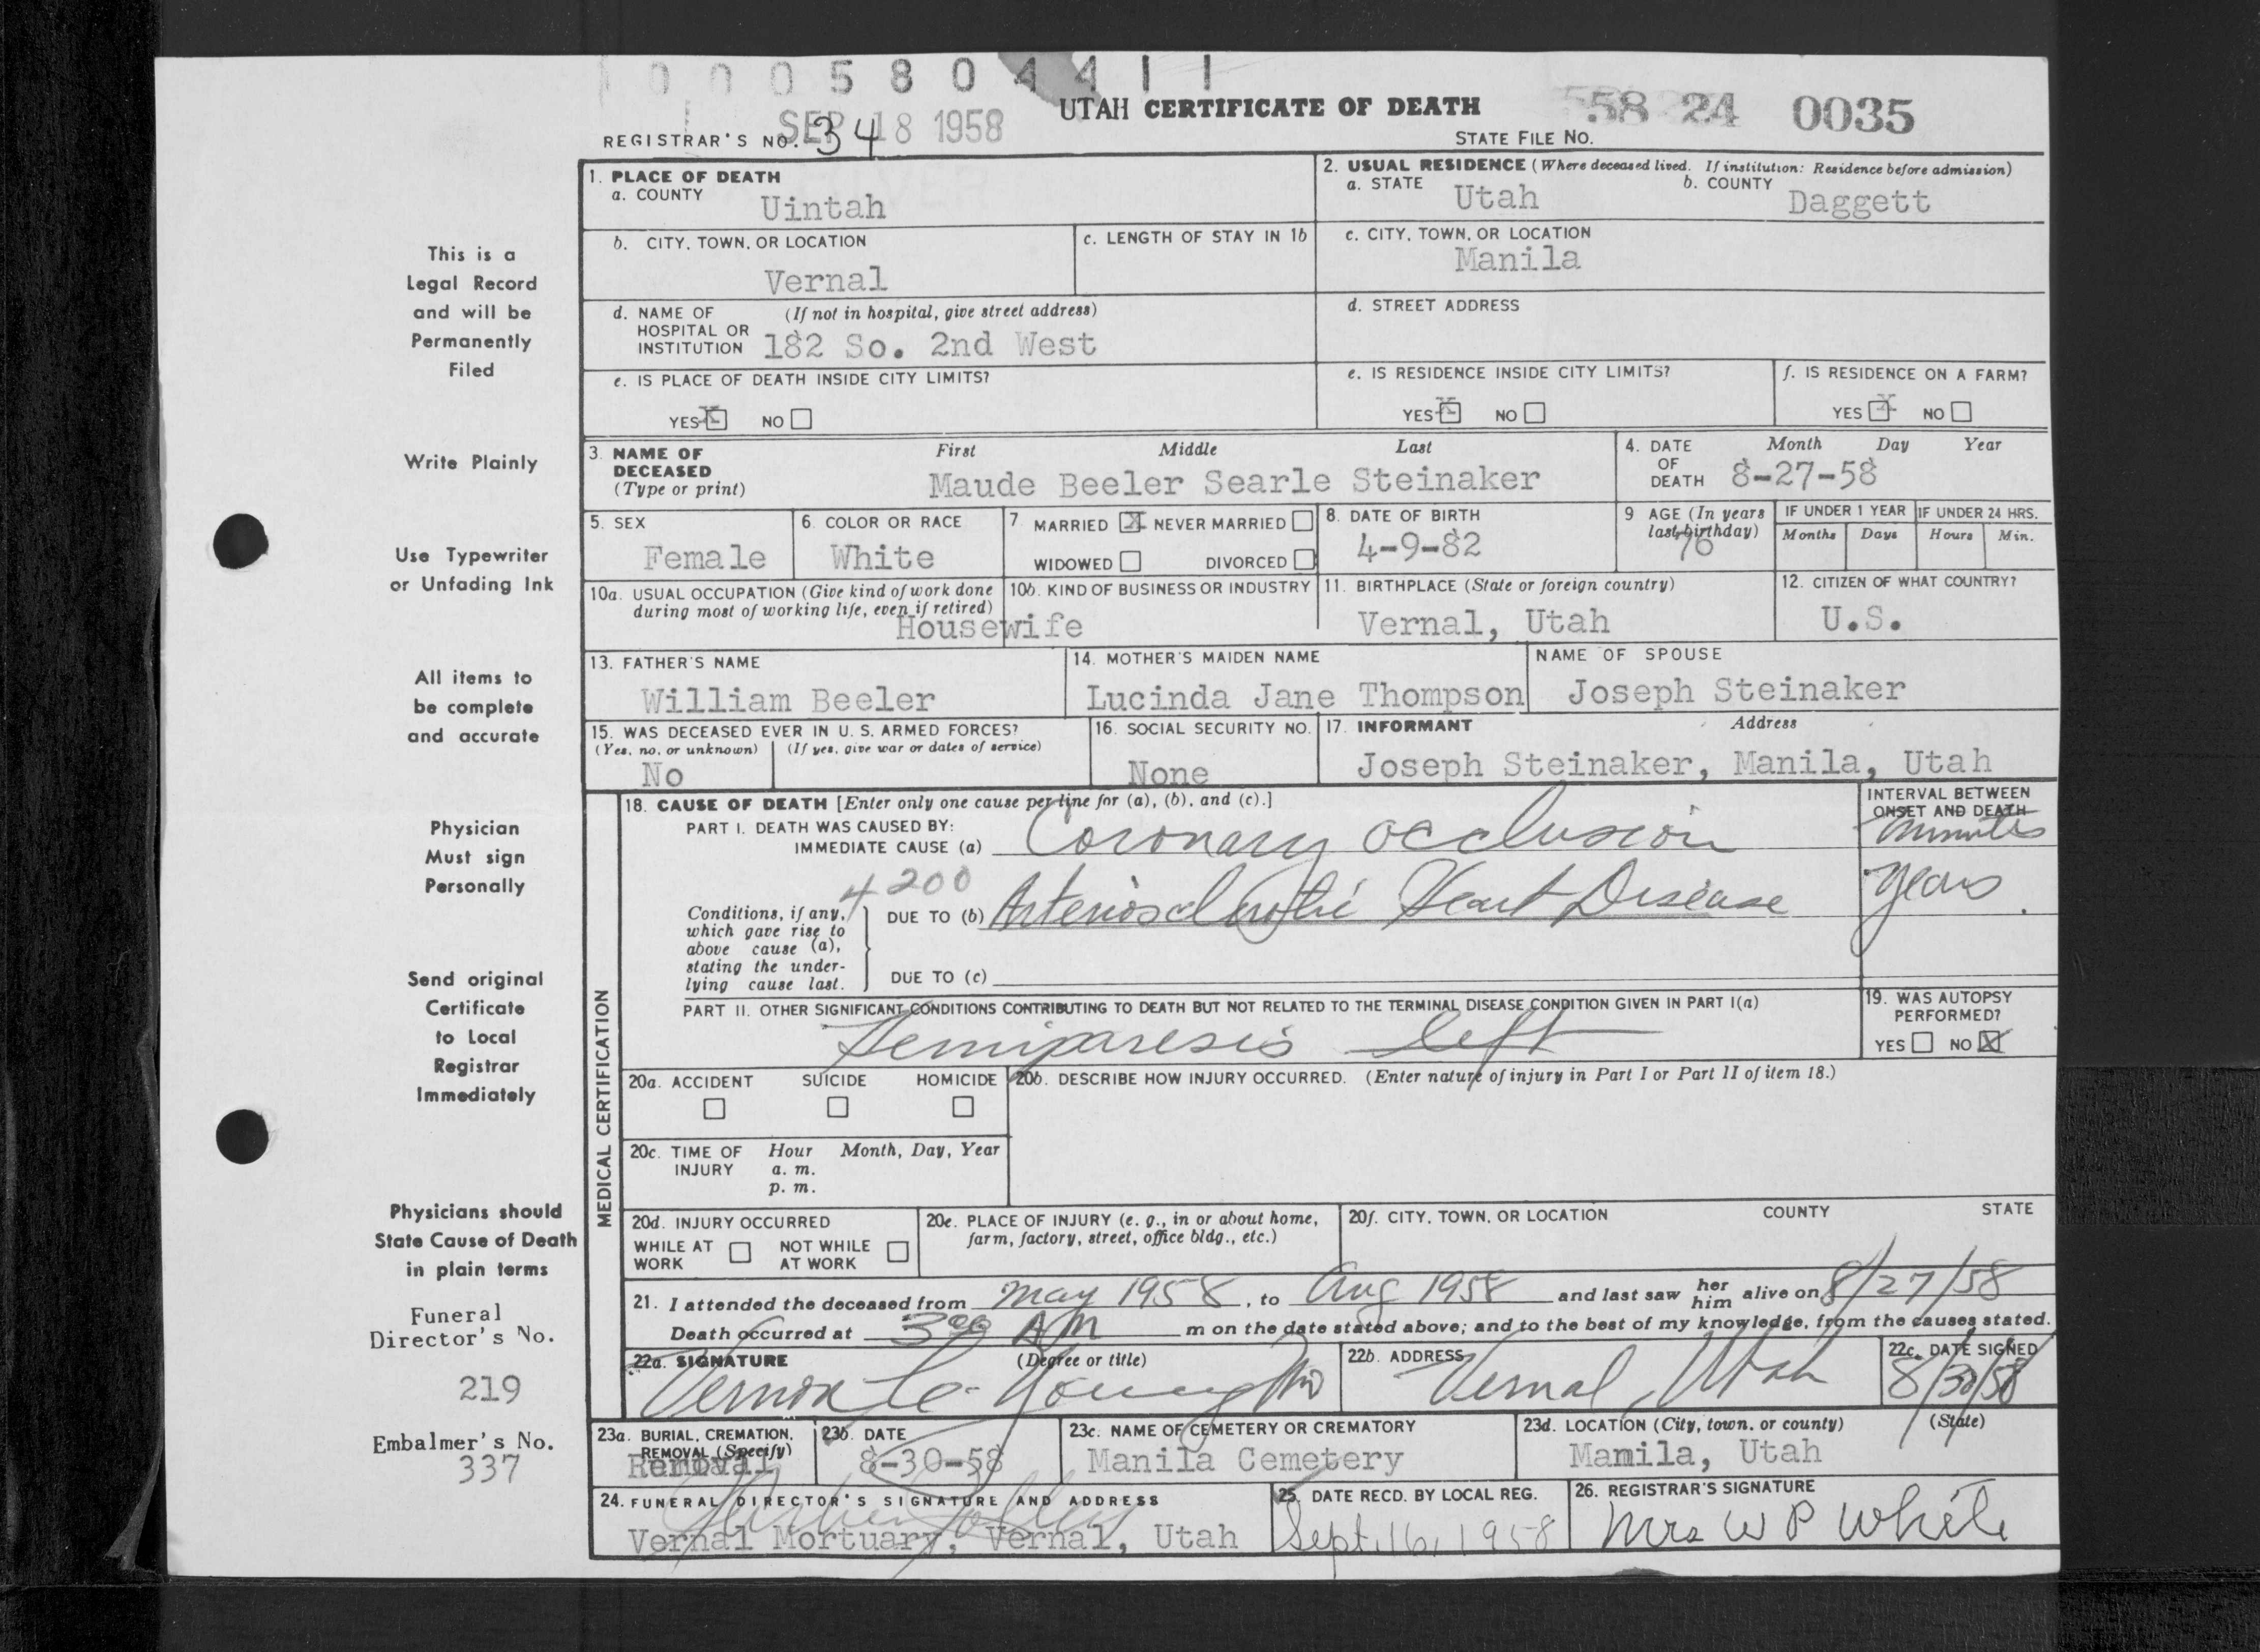 0005804411
SEP 18 1958
UTAH CERTIFICATE OF DEATH
58 24 0035
REGISTRAR'S NO. 34
STATE FILE NO.
1. PLACE OF DEATH
a. COUNTY
Uintah
2. USUAL RESIDENCE (Where deceased lived. If institution: Residence before admission)
a. STATE Utah
b. COUNTY Daggett
b. CITY, TOWN, OR LOCATION
Vernal
c. LENGTH OF STAY IN 1b
c. CITY, TOWN, OR LOCATION
Manila
d. NAME OF HOSPITAL OR INSTITUTION
(If not in hospital, give street address)
182 So. 2nd West
d. STREET ADDRESS
e. IS PLACE OF DEATH INSIDE CITY LIMITS?
YES X NO
e. IS RESIDENCE INSIDE CITY LIMITS?
YES X NO
f. IS RESIDENCE ON A FARM?
YES X NO
3. NAME OF DECEASED
(Type or print)
First Middle Last
Maude Beeler Searle Steinaker
4. DATE OF DEATH
Month Day Year
8-27-58
5. SEX
Female
6. COLOR OR RACE
White
7. MARRIED X NEVER MARRIED
WIDOWED DIVORCED
8. DATE OF BIRTH
4-9-82
9 AGE (In years last birthday)
76
IF UNDER 1 YEAR
Months Days
IF UNDER 24 HRS.
Hours Min.
10a. USUAL OCCUPATION (Give kind of work done
during most of working life, even if retired)
Housewife
10b. KIND OF BUSINESS OR INDUSTRY
11. BIRTHPLACE (State or foreign country)
Vernal, Utah
12. CITIZEN OF WHAT COUNTRY?
U.S.
13. FATHER'S NAME
William Beeler
14. MOTHER'S MAIDEN NAME
Lucinda Jane Thompson
NAME OF SPOUSE
Joseph Steinaker
15. WAS DECEASED EVER IN U. S. ARMED FORCES?
(Yes, no, or unknown) (If yes, give war or dates of service)
No
16. SOCIAL SECURITY NO.
None
17. INFORMANT Address
Joseph Steinaker, Manila, Utah
MEDICAL CERTIFICATION
18. CAUSE OF DEATH [Enter only one cause per line for (a), (b), and (c).]
INTERVAL BETWEEN
ONSET AND DEATH
PART I. DEATH WAS CAUSED BY:
IMMEDIATE CAUSE (a) Coronary occlusion
minutes
4200
Conditions, if any,
which gave rise to
above cause (a),
stating the under-
lying cause last.
DUE TO (b) Arteriosclerotic Heart Disease
years
DUE TO (c)
PART II. OTHER SIGNIFICANT CONDITIONS CONTRIBUTING TO DEATH BUT NOT RELATED TO THE TERMINAL DISEASE CONDITION GIVEN IN PART I(a)
Hemiparesis left
19. WAS AUTOPSY
PERFORMED?
YES NO X
20a. ACCIDENT SUICIDE HOMICIDE
20b. DESCRIBE HOW INJURY OCCURRED. (Enter nature of injury in Part I or Part II of item 18.)
20c. TIME OF INJURY
Hour Month, Day, Year
a. m.
p. m.
20d. INJURY OCCURRED
WHILE AT WORK
NOT WHILE AT WORK
20e. PLACE OF INJURY (e. g., in or about home,
farm, factory, street, office bldg., etc.)
20f. CITY, TOWN, OR LOCATION COUNTY STATE
21. I attended the deceased from May 1958, to Aug 1958 and last saw her him alive on 8/27/58
Death occurred at 3 00 AM m on the date stated above; and to the best of my knowledge, from the causes stated.
22a. SIGNATURE (Degree or title)
Vernon Le Young MD
22b. ADDRESS
Vernal, Utah
22c. DATE SIGNED
8/30/58
23a. BURIAL, CREMATION,
REMOVAL (Specify)
Removal
23b. DATE
8-30-58
23c. NAME OF CEMETERY OR CREMATORY
Manila Cemetery
23d. LOCATION (City, town, or county) (State)
Manila, Utah
24. FUNERAL DIRECTOR'S SIGNATURE AND ADDRESS
Vernal Mortuary, Vernal, Utah
25. DATE RECD. BY LOCAL REG.
Sept. 16, 1958
26. REGISTRAR'S SIGNATURE
Mrs W P White
This is a
Legal Record
and will be
Permanently
Filed
Write Plainly
Use Typewriter
or Unfading Ink
All items to
be complete
and accurate
Physician
Must sign
Personally
Send original
Certificate
to Local
Registrar
Immediately
Physicians should
State Cause of Death
in plain terms
Funeral
Director's No.
219
Embalmer's No.
337